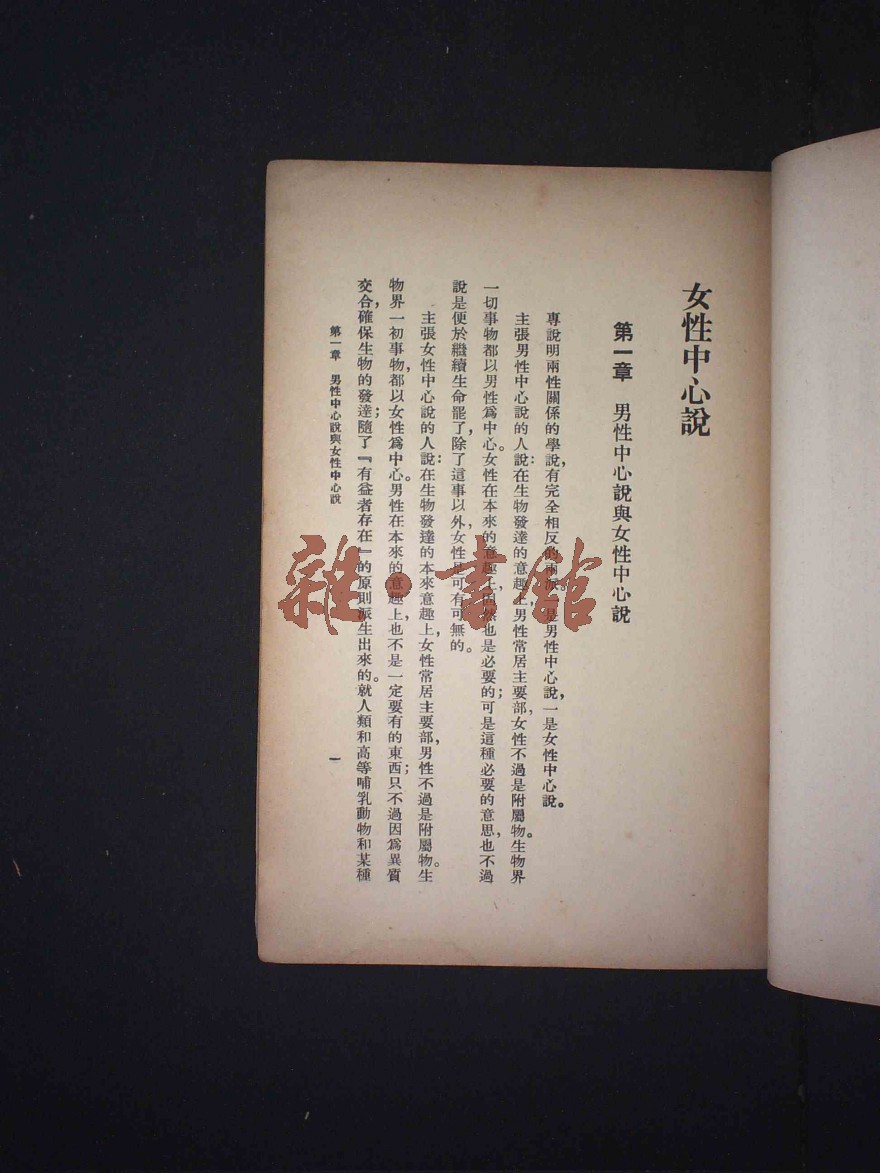 女性中心說
第一章　男性中心說與女性中心說
專說明兩性關係的學說，有完全相反的兩派。一是男性中心說，一是女性中心說。
主張男性中心說的人說：在生物發達的意趣上，男性常居主要部，女性不過是附屬物。生物界
一切事物都以男性爲中心。女性在本來的意趣上，固然也是必要的；可是這種必要的意思，也不過
說是便於繼續生命罷了，除了這事以外，女性是可有可無的。
主張女性中心說的人說：在生物發達的本來意趣上，女性常居主要部，男性不過是附屬物。生
物界一初事物，都以女性爲中心。男性在本來的意趣上，也不是一定要有的東西；只不過因爲異質
交合，確保生物的發達；隨了『有益者存在』的原則派生出來的。就人類和高等哺乳動物和某種
第一章　男性中心說與女性中心說
一
雜·書館